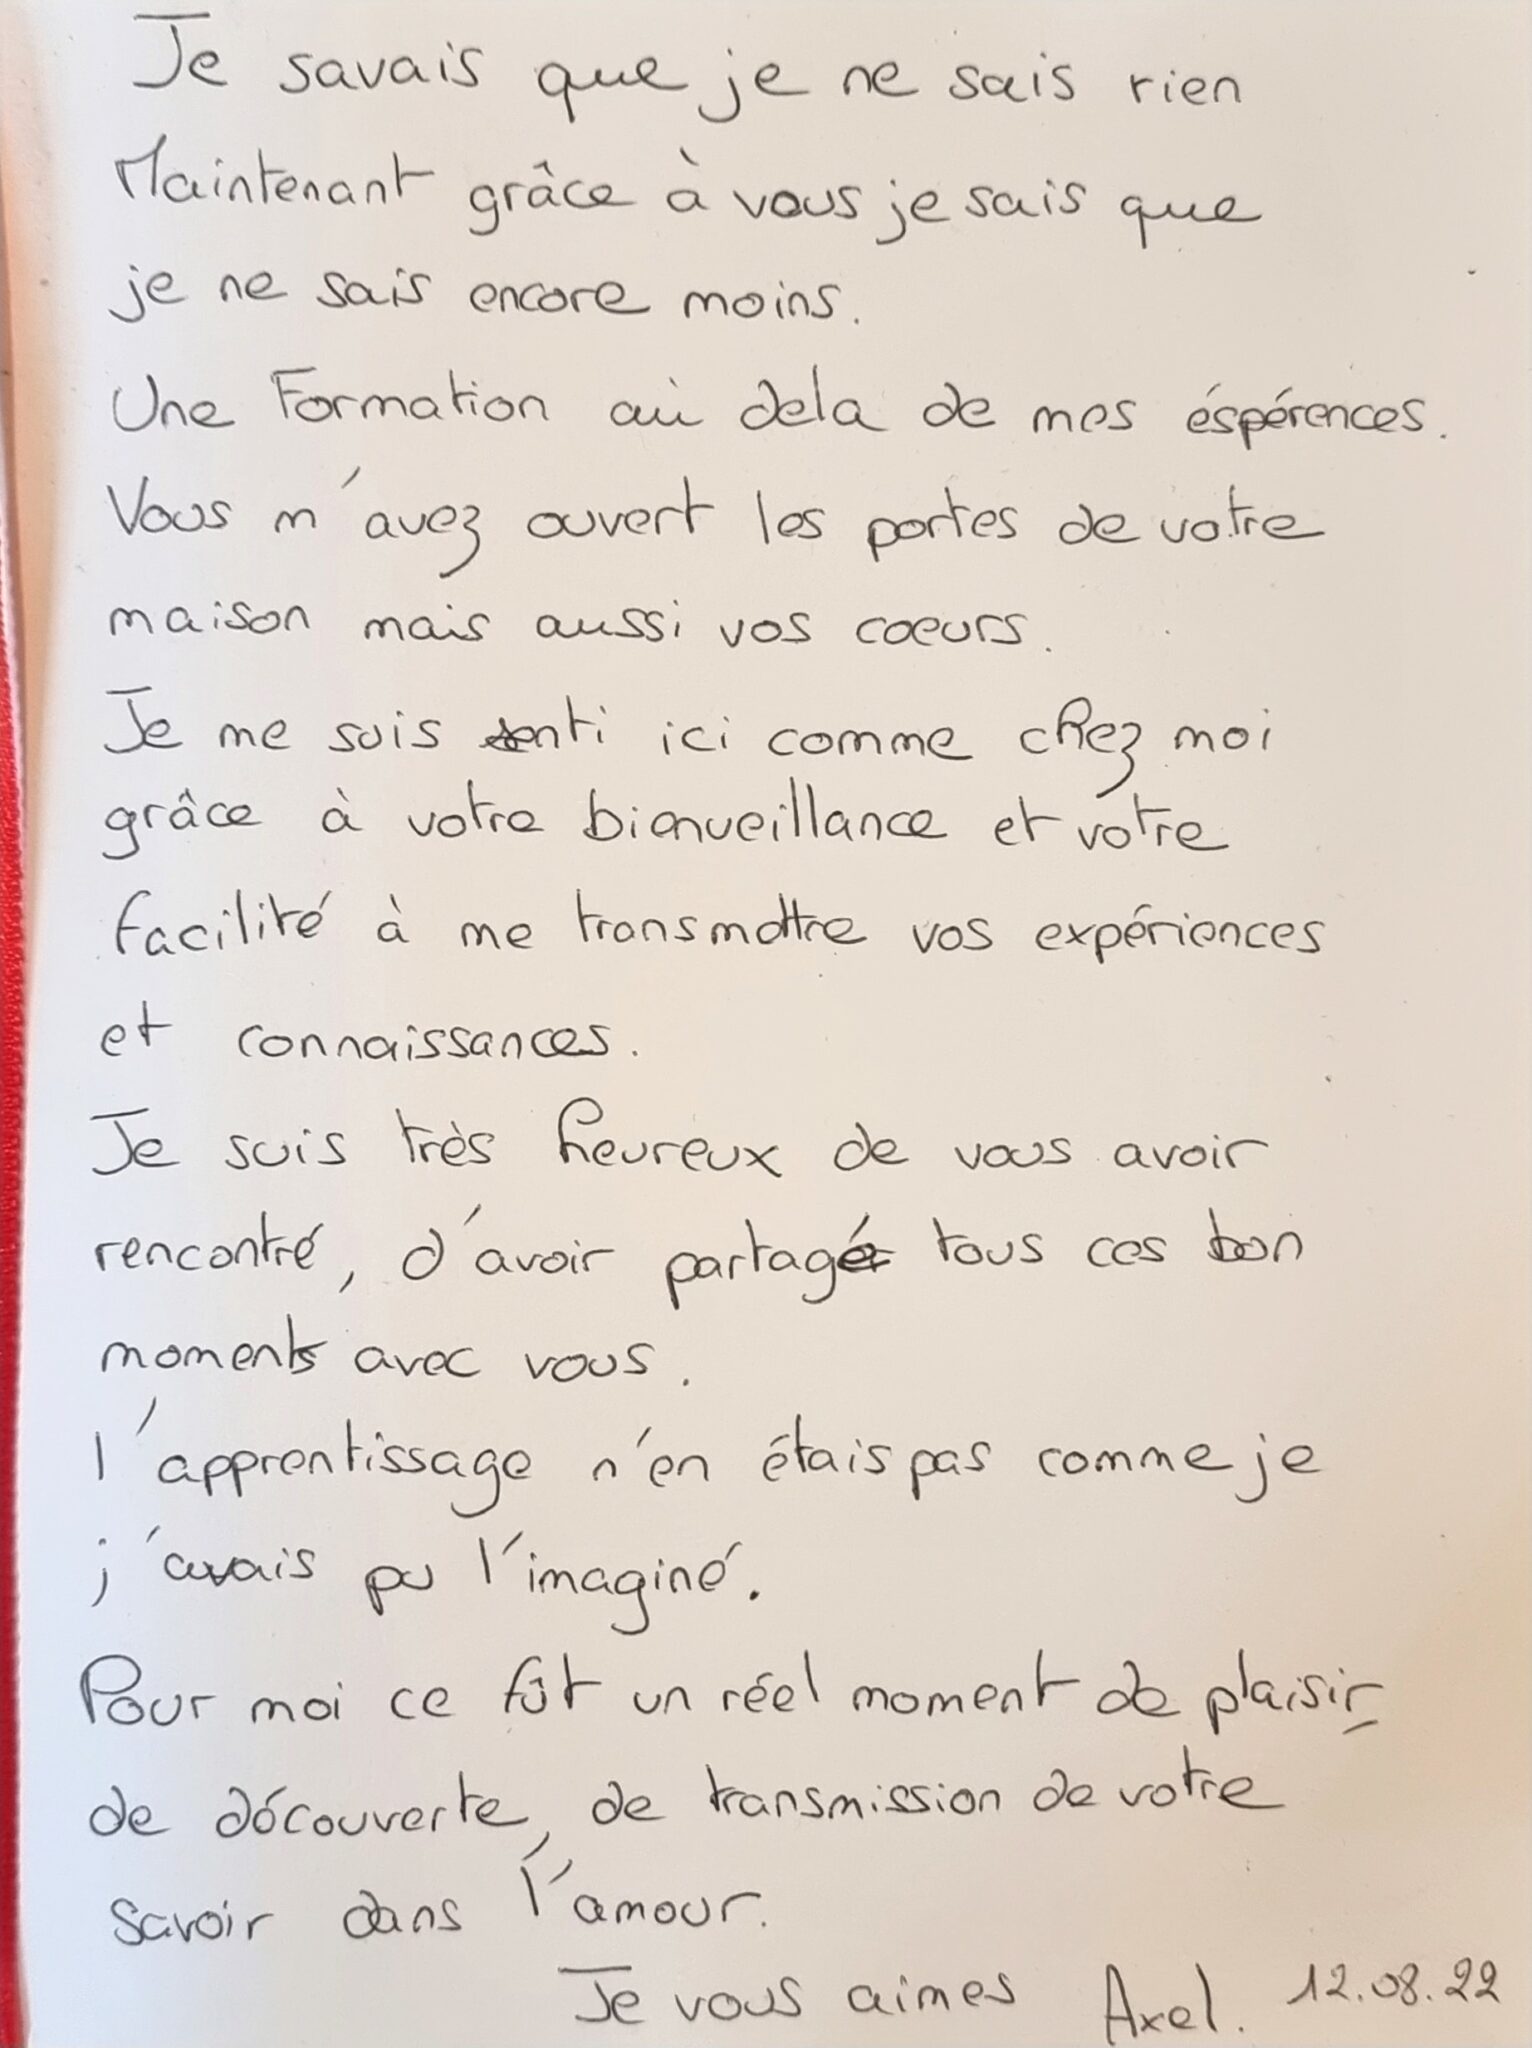 Je savais que je ne sais rien
Maintenant grâce à vous je sais que
je ne sais encore moins.
Une Formation aù dela de mes éspérences.
Vous m'avez ouvert les portes de votre
maison mais aussi vos coeurs.
Je me suis senti ici comme chez moi
grâce à votre bienveillance et votre
facilité à me transmettre vos expériences
et connaissances.
Je suis très heureux de vous avoir
rencontré, d'avoir partagé tous ces bon
moments avec vous.
l'apprentissage n'en étais pas comme je
j'avais pu l'imaginé.
Pour moi ce fût un réel moment de plaisir
de découverte, de transmission de votre
savoir dans l'amour.
Je vous aimes Axel. 12.08.22